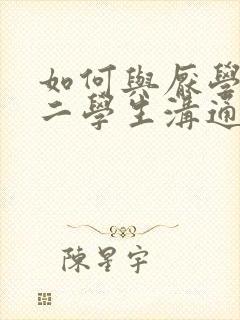 如何與厭學
二學生溝通
陳星宇